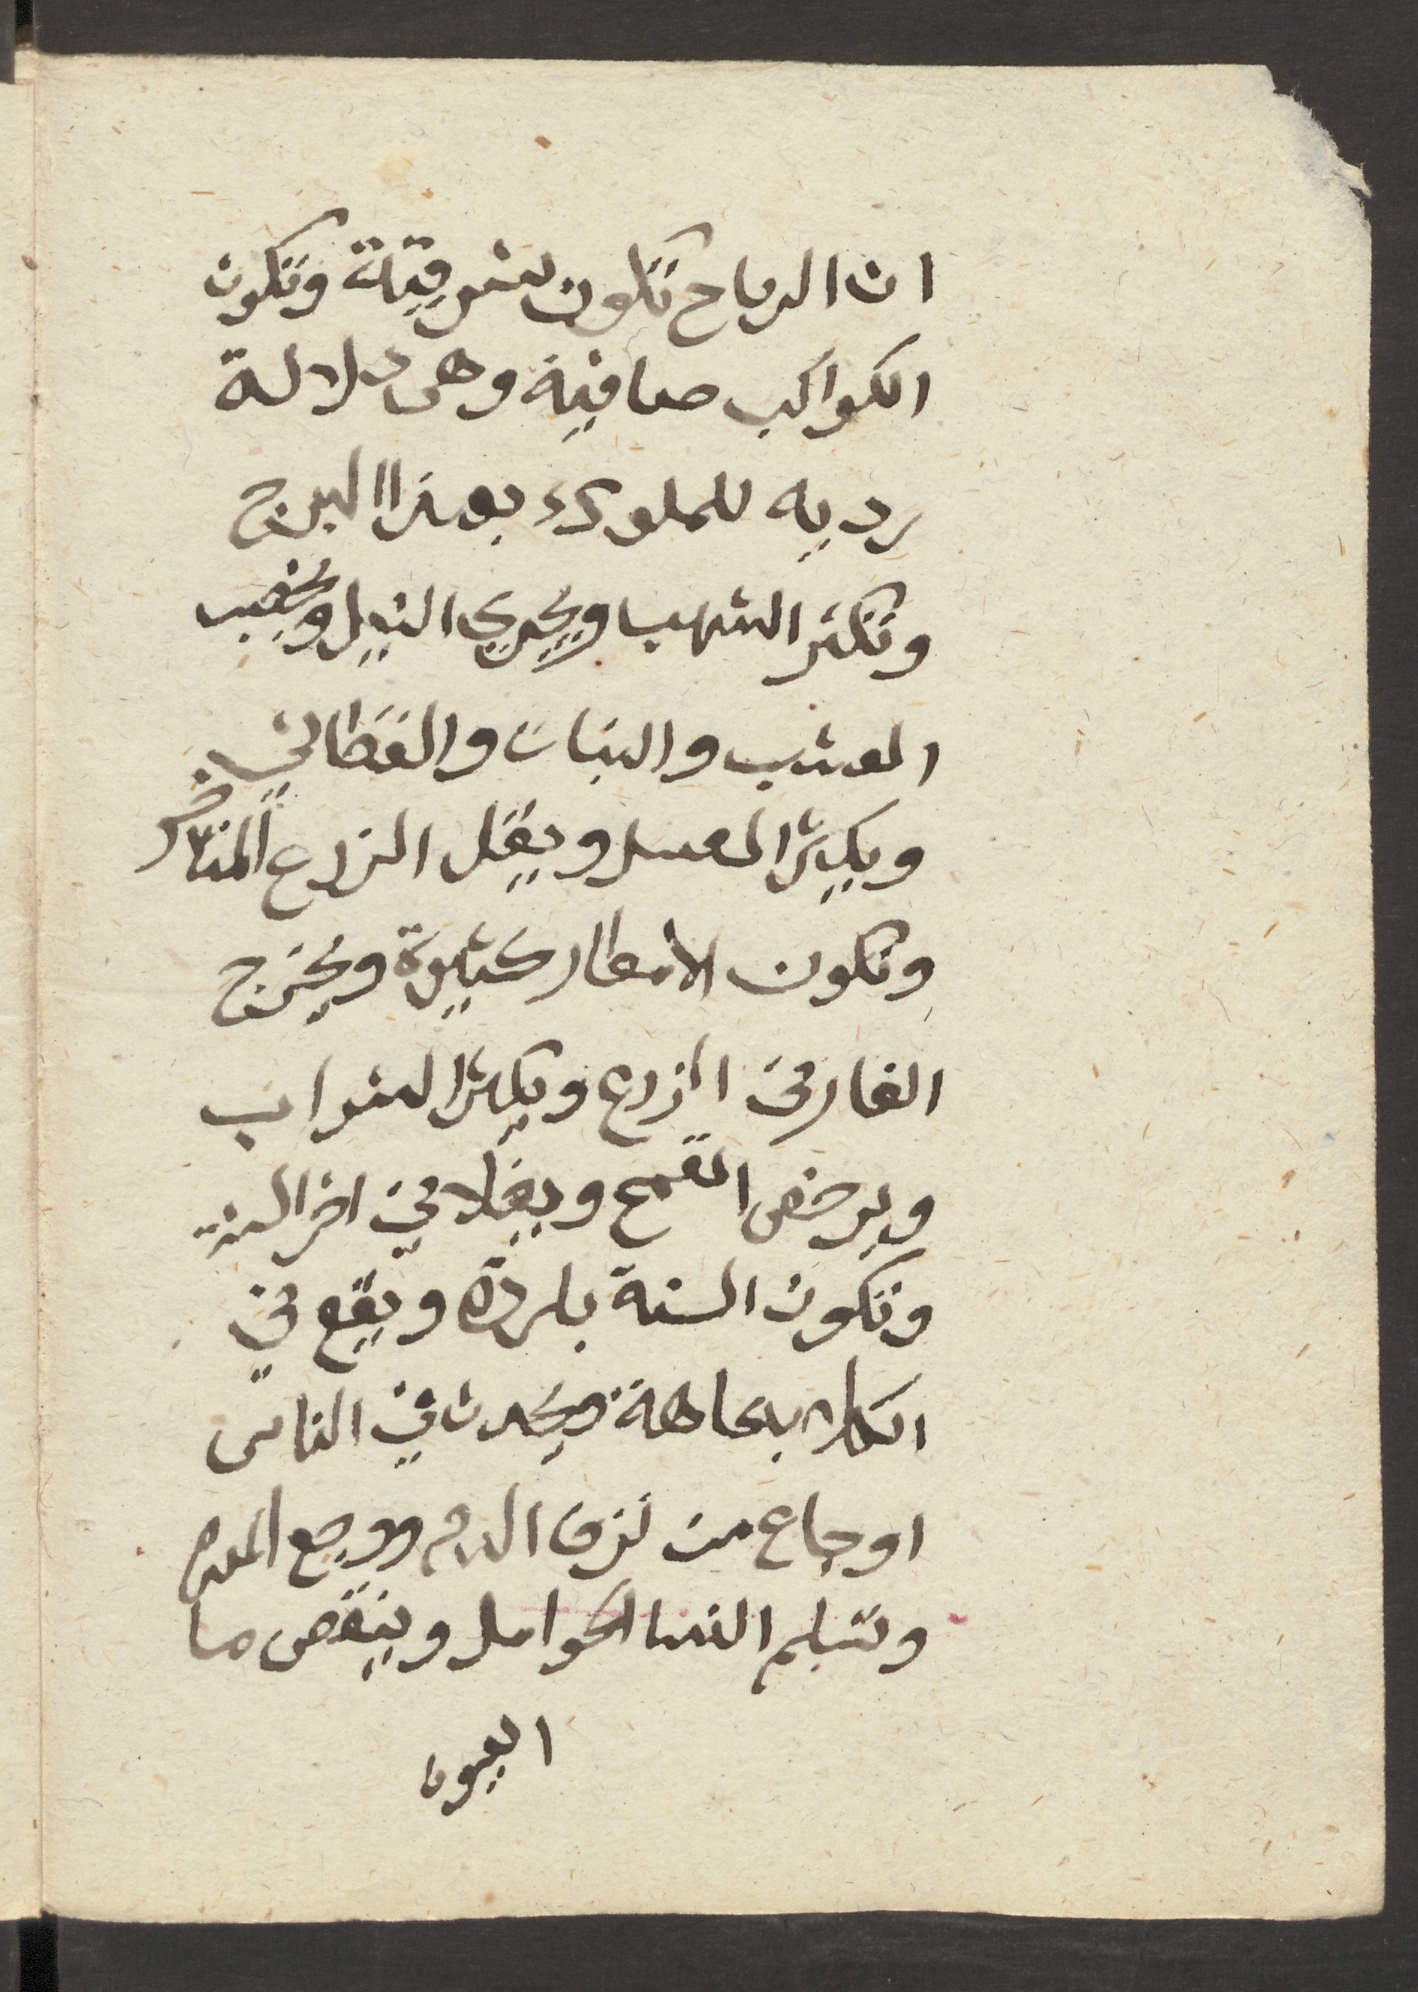 ان الرياح تكون شرقية وتكون
الكواكب صافية وهى دلالة
رديه للملوك بهذا البرج
وتكثر الشهب ويجري النيل ويخصب
العشب والنبات والقطاني
ويكثر العسل ويقل الزرع المتاخر
وتكون الامطار كثيرة ويخرج
الفار فى الزرع ويكثر الشراب
ويرخص القمح ويغلا في اخر السنة
وتكون السنة باردة ويقع في
الكلا عاهة ويحدث في الناس
اوجاع من نزف الدم ووجع المعده
وتسلم النسا الحوامل وينقص ما
العيون